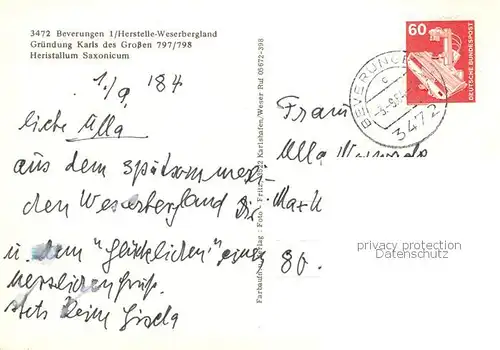 3472 Beverungen 1/Herstelle-Weserbergland
Gründung Karls des Großen 797/798
Heristallum Saxonicum
1./9. 84
liebe Ulla
aus dem spätsommerli-
den Weserbergland Dir
u. dem "Glücklichen" einen
herzlichen Gruß.
stets Deine Gisela
Foto: Fritz
Karlshafen/Weser Ruf 05672-398
60
DEUTSCHE BUNDESPOST
BEVERUNGEN
3472
Frau
Ulla
Mark
80.
privacy protection
Datenschutz